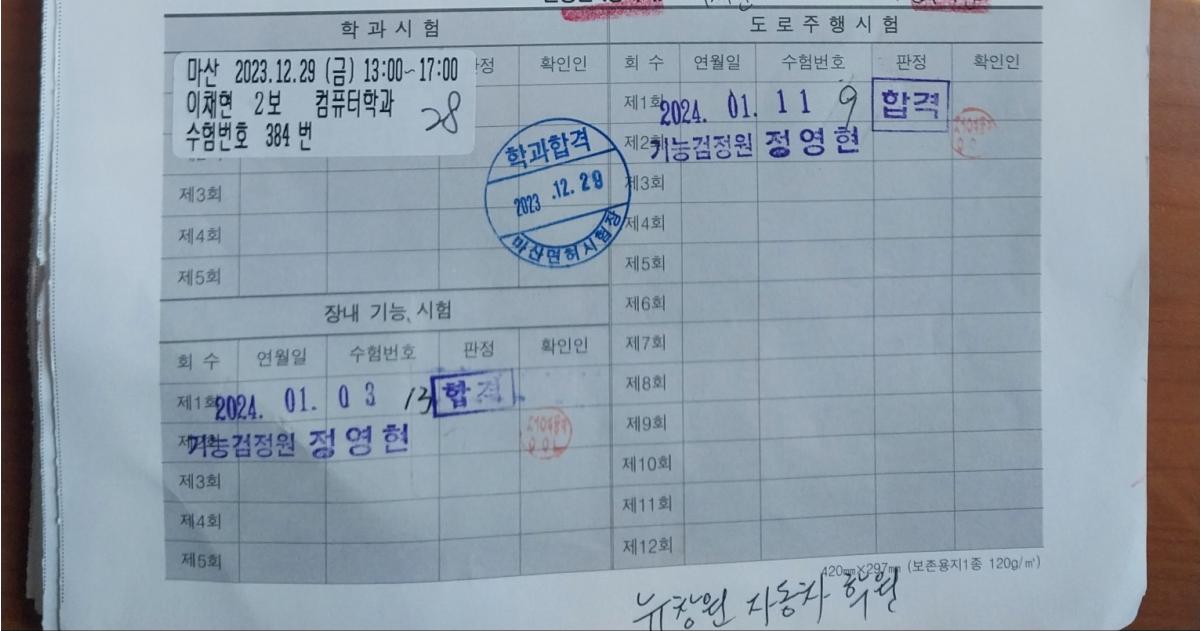 학과시험
도로주행시험
판정 확인인
회 수 연월일 수험번호 판정 확인인
마산 2023.12.29 (금) 13:00~17:00
이채현 2보 컴퓨터학과 28
수험번호 384 번
제1회 2024. 01. 11 9 합격
제2회 기능검정원 정영현
학과합격
2023 .12. 29
마산면허시험장
제3회
제4회
제5회
제3회
제4회
제5회
제6회
제7회
제8회
제9회
제10회
제11회
제12회
장내 기능 시험
회 수 연월일 수험번호 판정 확인인
제1회 2024. 01. 03 13 합격
기능검정원 정영현
제3회
제4회
제5회
420㎜×297㎜ (보존용지1종 120g/㎡)
뉴창원 자동차 학원